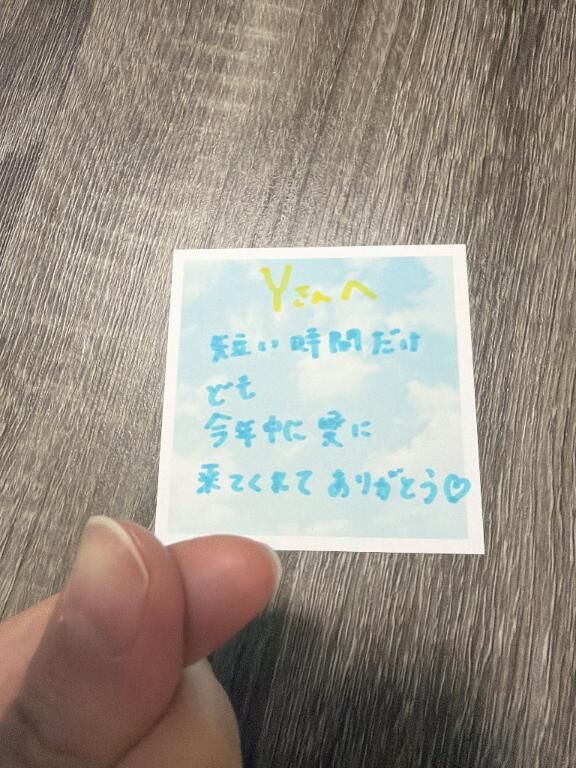 Yさんへ
短い時間だけ
ども
今年中に愛に
来てくれてありがとう♡